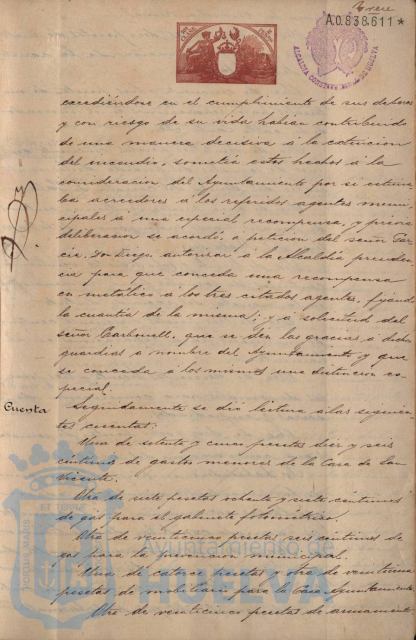 Trece
A.0.838.611*
ALCALDIA HUELVA
cediéndose en el cumplimiento de sus deberes
y con riesgo de su vida habian contribuido
de una manera decisiva á la estincion
del incendio, sometia estos hechos á la
consideracion del Ayuntamiento por si estima
ba acreedores á los referidos agentes muni
cipales á una especial recompensa, y previa
deliberacion se acordó, a peticion del señor Gar
cia, Don Diego, autorizar á la Alcaldia presiden
cia para que conceda una recompensa
en metálico á los tres citados agentes, fijando
la cuantia de la misma; y á solicitud del
señor Carbonell, que se den las gracias á dichos
guardias a nombre del Ayuntamiento y que
se conceda á los mismos una distincion es-
pecial.
Cuenta
Seguidamente se dió lectura á las siguien-
tes cuentas:
Una de setenta y cinco pesetas diez y seis
céntimos de gastos menores de la Casa de San
Vicente.
Otra de siete pesetas ochenta y siete céntimos
de gas para el gabinete fotométrico.
Otra de veinticinco pesetas seis céntimos de
gas para la
Una de catorce pesetas y otra de veintiuna
pesetas de mobiliario para la Casa Ayuntamiento.
Otra de veinticinco pesetas de armamento
Ayuntamiento de
HUELVA
PORTUS MARIS
ET TERRE